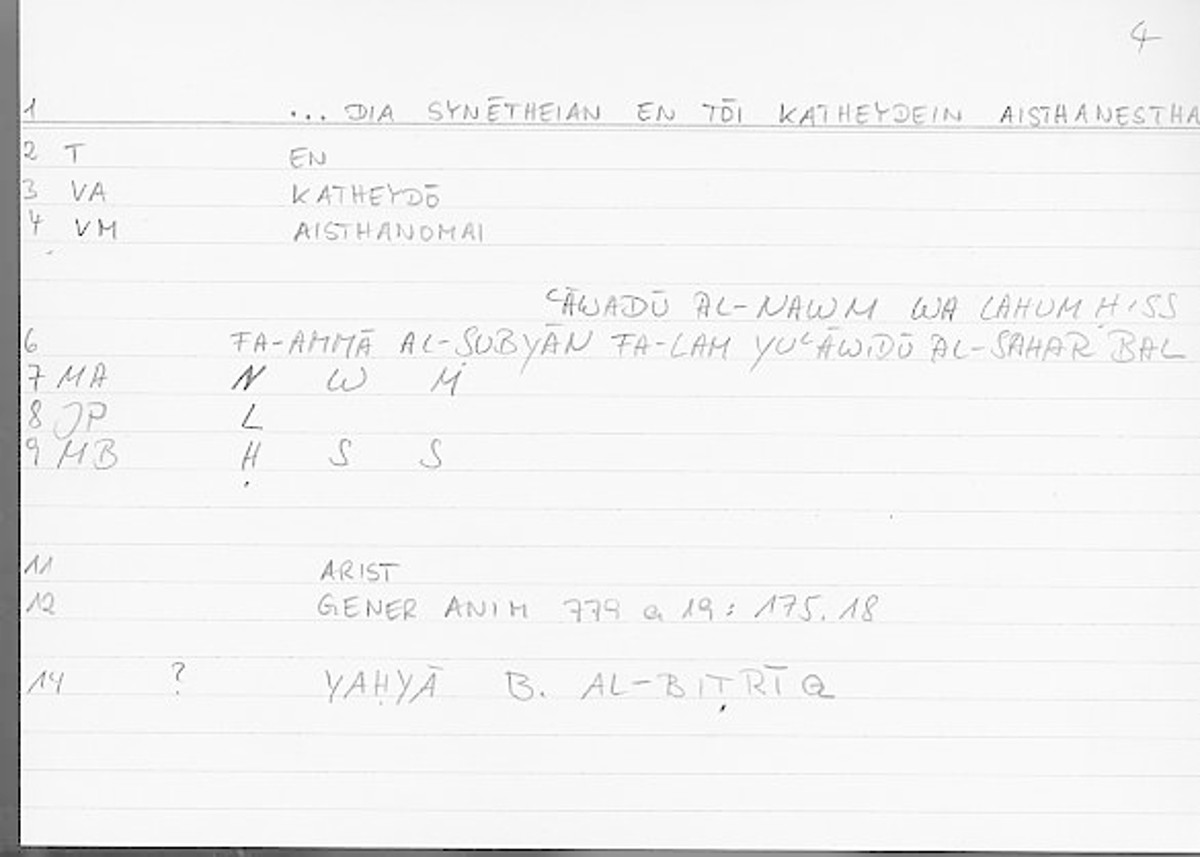 4
1 ... DIA SYNĒTHEIAN EN TŌI KATHEYDEIN AISTHANESTHA
2 T EN
3 VA KATHEYDŌ
4 VM AISTHANOMAI
ʿĀWADŪ AL-NAWM WA LAHUM ḤISS
6 FA-AMMĀ AL-SUBYĀN FA-LAM YUʿĀWIDŪ AL-SAHAR BAL
7 MA N W M
8 JP L
9 MB Ḥ S S
11 ARIST
12 GENER ANIM 779 a 19: 175.18
14 ? YAḤYĀ B. AL-BIṬRĪQ